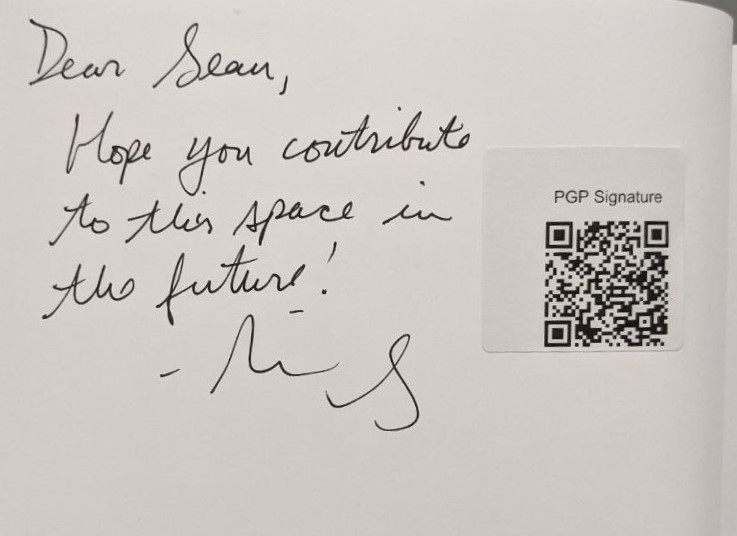 Dear Sean,
Hope you contribute
to this space in
the future!
PGP Signature